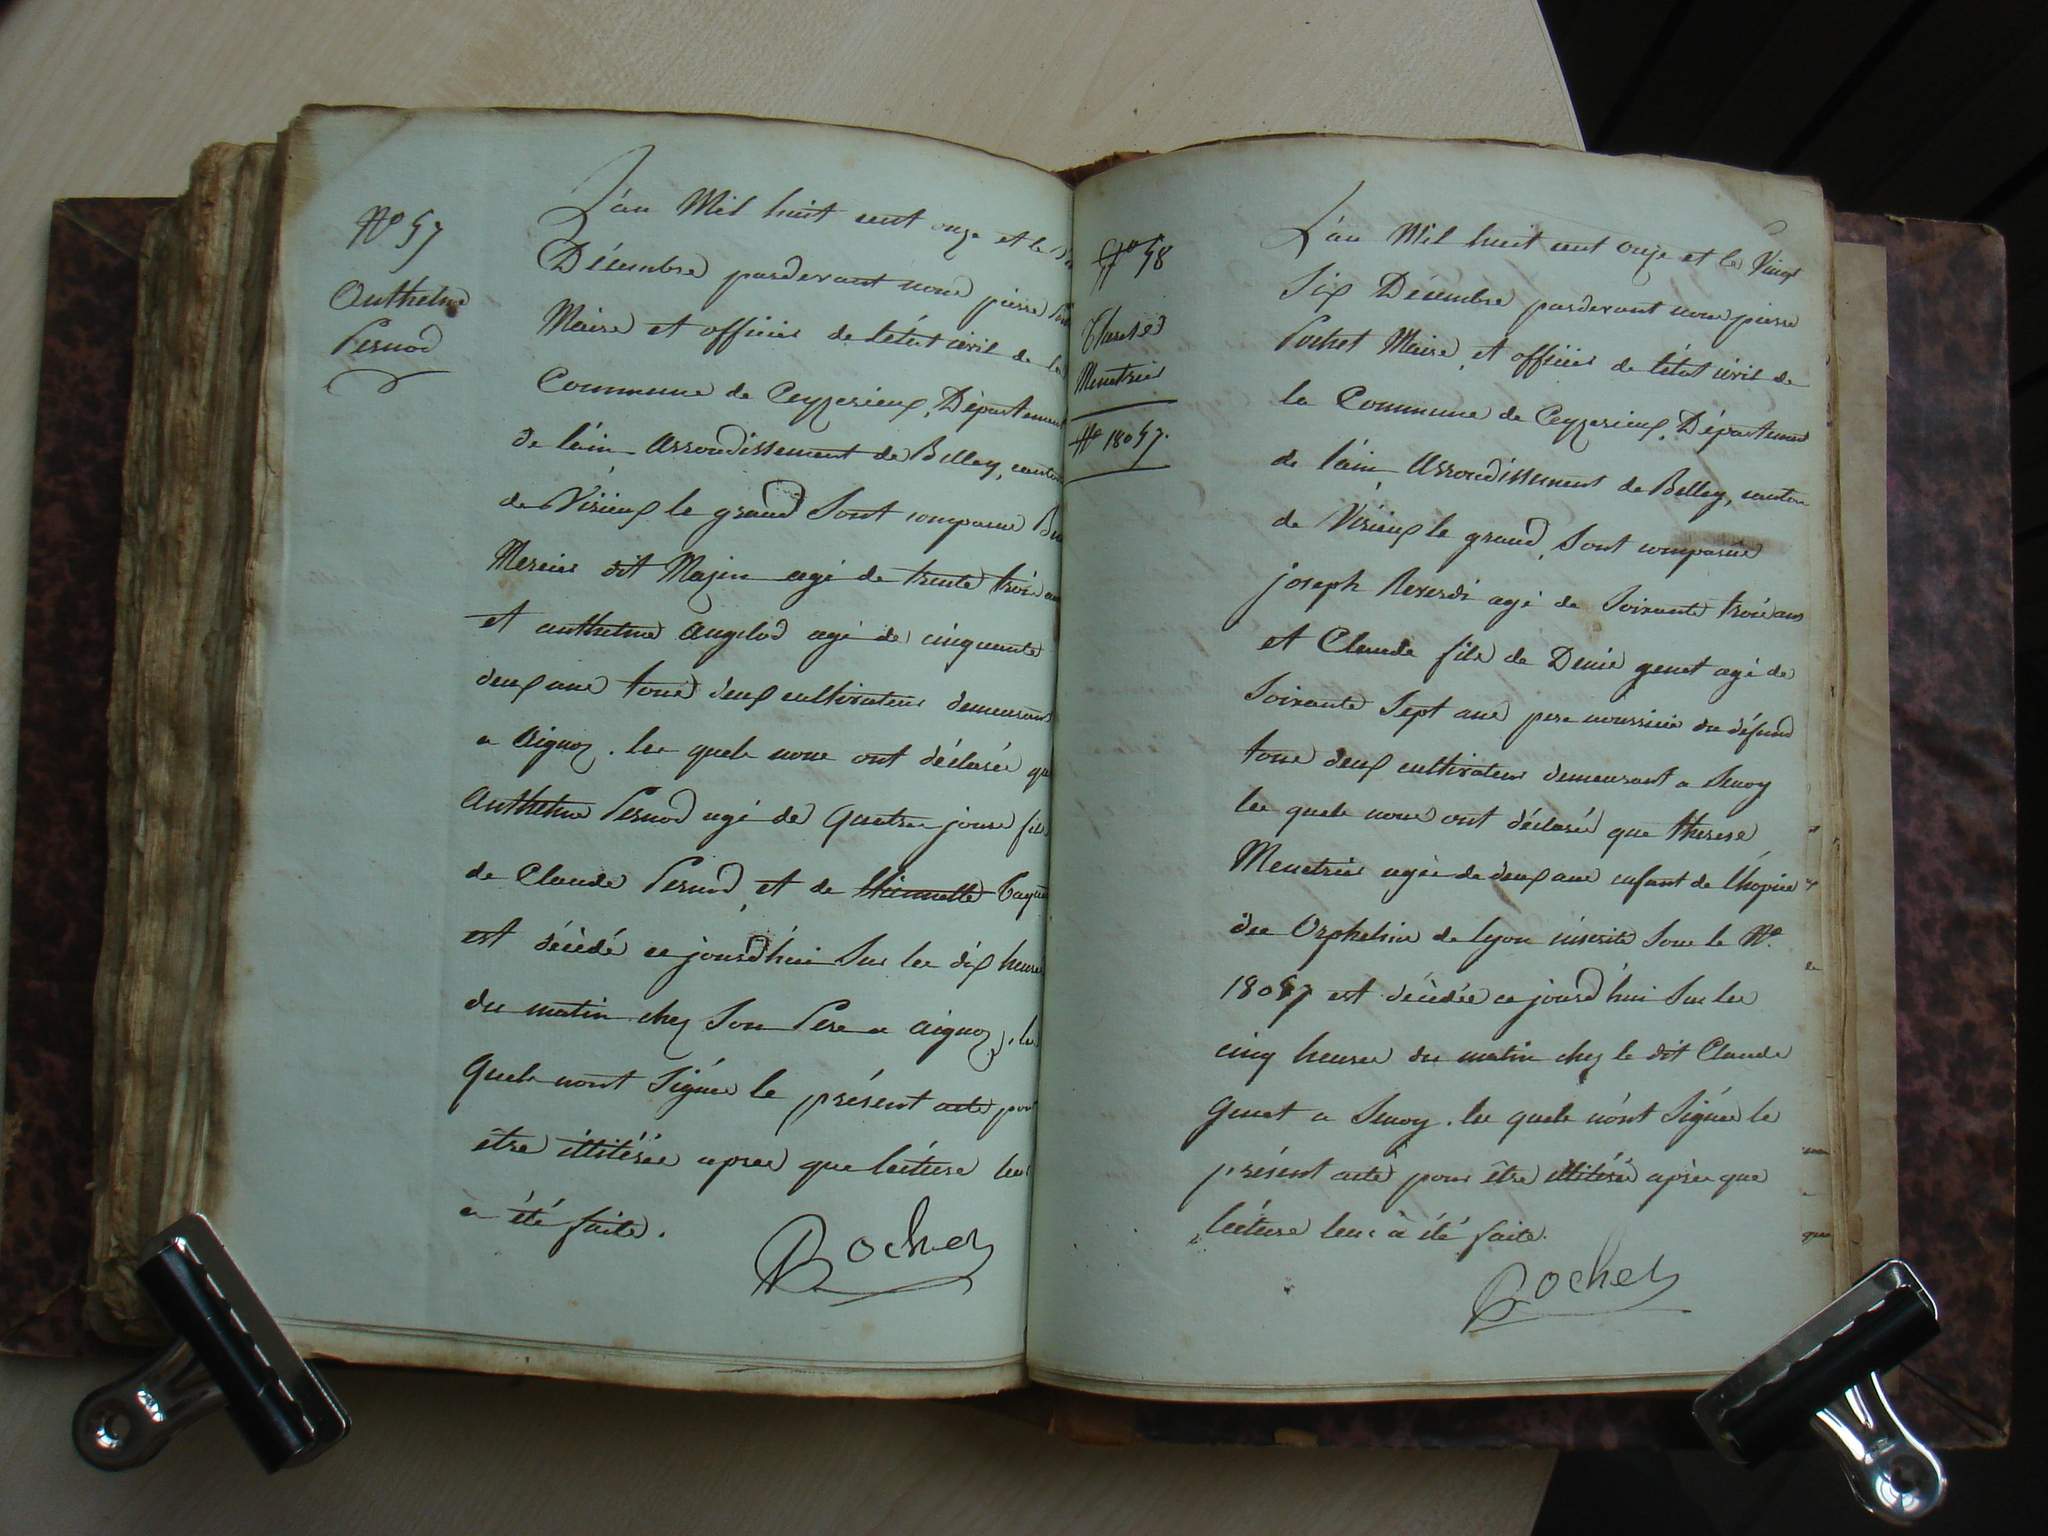 No 57
Anthelme
Pernod
L'an Mil huit cent onze et le
Décembre pardevant nous pierre
Maire et officier de l'état civil de la
Commune de Ceyzerieux, Département
de l'ain Arrondissement de Belley, canton
de Virieux le grand Sont comparus
Mercier dit Mazin agé de trente trois ans
et anthelme Angelod agé de cinquante
deux ans tous deux cultivateurs demeurant
a Aignoz. les quels nous ont déclarés que
Anthelme Pernod agé de Quatre jours fils
de Claude Pernod, et de thiennette
est décédé ce jourd'hui Sur les dix heures
du matin chez Son Pere a aignoz, les
Quels n'ont Signés le présent acte pour
être illitérés apres que lécture leur
a été faite.
Pochet
No 58
Therese
Menetrier
No 18057.
L'an Mil huit cent Onze et le Vingt
Six Décembre pardevant nous pierre
Pochet Maire, et officier de l'état civil de
la Commune de Ceyzerieux, Département
de l'ain Arrondissement de Belley, canton
de Virieux le grand, Sont comparus
joseph Reverdi agé de Soixante trois ans
et Claude fils de Denis genet agé de
Soixante Sept ans pere nourricier du défund
tous deux cultivateurs demeurant a Senoy
les quels nous ont déclarés que therese
Menetrier agée de deux ans enfant de l'hopice
des Orphelins de lyon inscrite Sous le No.
18057 est décédée ce jourd'hui Sur les
cinq heures du matin chez le dit Claude
Genet a Senoy. les quels n'ont Signés le
présent acte pour être illitérés après que
lécture leur à été faite.
Pochet